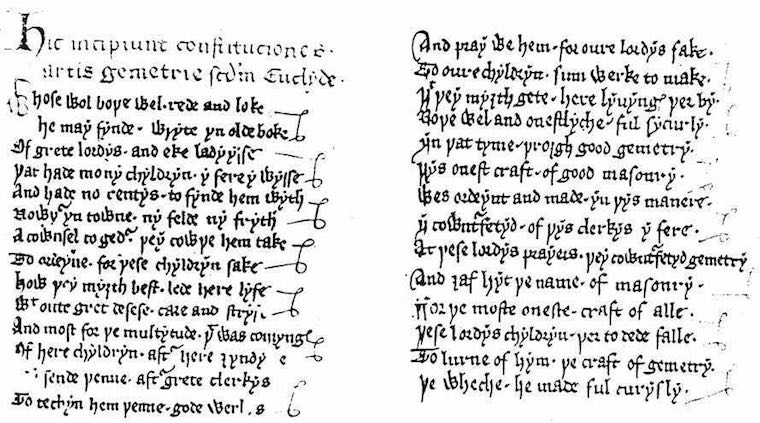 Hic incipiunt constituciones
artis gemetrie scdm Euclyde.
Whose wol boþe wel rede and loke
he may fynde wryte yn olde boke
Of grete lordys and eke ladyysse
þat hade mony chyldryn y fere y wysse
And hade no rentys to fynde hem wyth
Nowþr yn towne ny felde ny fryth
A cownsel togedr þey cowþe hem take
To ordeyne for þese chyldryn sake
How þey myȝth best lede here lyfe
Wt oute gret desese care and stryf
And most for þe multytude þt was comyng
Of here chyldryn aftr here
sende þenne aftr grete clerkys
To techyn hem þenne gode werkys
And pray we hem for oure lordys sake
To oure chyldryn sum werke to make
þt þey myȝth gete here lyvyng þer by
Boþe wel and onestlyche ful sycurly
Yn þat tyme þroȝgh good gemetry
þys onest craft of good masonry
Wes ordeynt and made yn þys manere
Y cownterfetyd of þys clerkys y fere
At þese lordys prayers þey cownterfetyd gemetry
And ȝaf hyt þe name of masonry
For þe moste oneste craft of alle
þese lordys chyldryn þer to dede falle
To lurne of hym þe craft of gemetry
þe wheche he made ful curysly